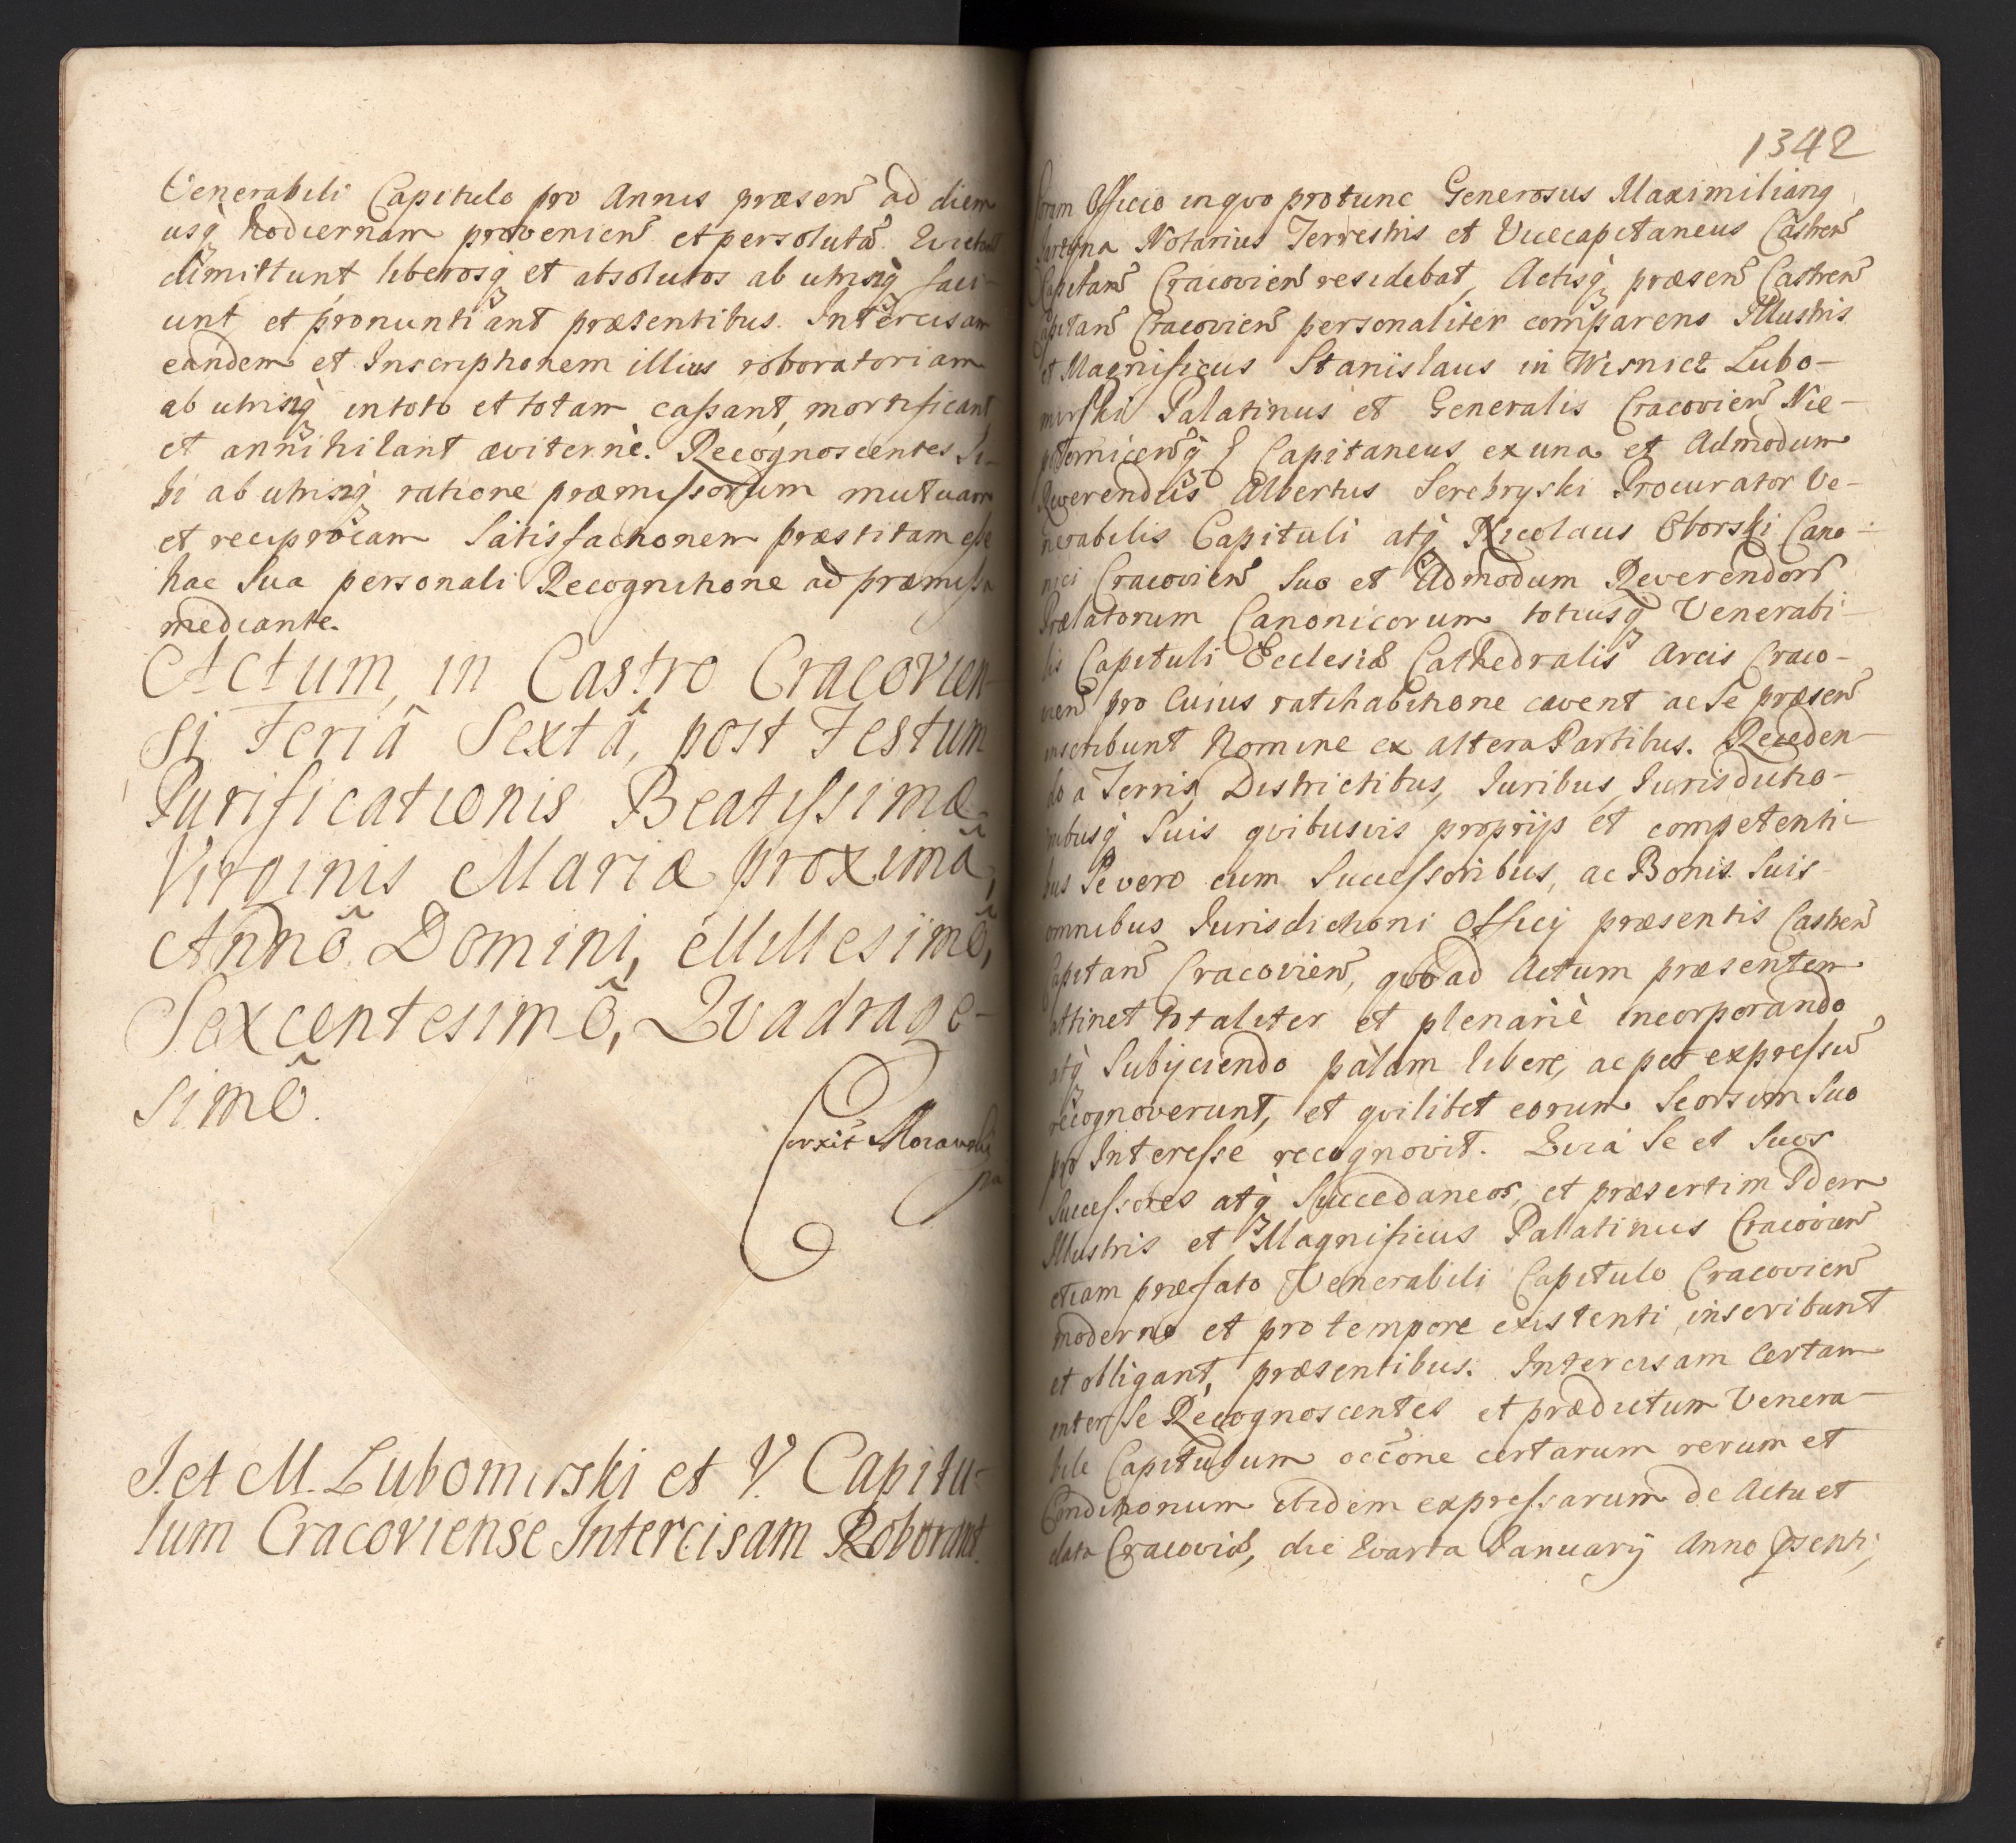 Venerabili Capitulo pro Annis præsen ad diem
usq hodiernam provenien et persoluta. Quietant
dimittunt liberosq et absolutos ab utrisq faci-
unt et pronuntiant præsentibus. Intercisam
eandem et Inscriptionem illius roboratoriam
ab utrisq in toto et totam cassant, mortificant
et annihilant æviternè. Recognoscentes Si-
bi ab utrisq ratione præmissorum mutuam
et reciprocam Satisfactionem præstitam esse
hac Sua personali Recognitione ad præmissa
mediante.
Actum, in Castro Cracovien-
si Feriâ Sextâ, post Festum
Purificationis Beatissimæ
Virginis Mariæ proximâ,
Annô Domini, Millesimô,
Sexcentesimô, Quadrage-
simô.
Corxit
J. et M. Lubomirski et V. Capitu-
lum Cracoviense Intercisam Roborant.
1342
Coram Officio in quo protunc Generosus Maximilianq
Notarius Terrestris et Vicecapitaneus Castren
Capitan Cracovien residebat, Actisq præsen Castren
Capitan Cracovien personaliter comparens Illustris
et Magnificus Stanislaus in Wisnicz Lubo-
mirski Palatinus et Generalis Cracovien Nie-
Capitaneus ex una et Admodum
Reverendus Albertus Serebryski Procurator Ve-
nerabilis Capituli atq Nicolaus Oborski Cano-
nici Cracovien Suo et Admodum Reverendor
Prælatorum Canonicorum totiusq Venerabi-
lis Capituli Ecclesiæ Cathedralis Arcis Craco-
vien pro cuius ratihabitione cavent ac Se præsen
inscribunt Nomine ex altera Partibus. Receden-
do a Terris, Districtibus, Juribus, Jurisdictio-
nibusq Suis quibusvis proprijs et competenti-
bus Se vero cum Successoribus, ac Bonis Suis
omnibus Jurisdictioni Officij præsentis Castren
Capitan Cracovien, quo ad Actum præsentem
attinet totaliter et plenariè incorporando
atq Subijciendo palam libere, ac per expressu
recognoverunt, et quilibet eorum Seorsim Suo
pro Interesse recognovit. Quia Se et Suos
Successores atq Succedaneos, et præsertim Idem
Illustris et Magnificus Palatinus Cracovien
etiam præfato Venerabili Capitulo Cracovien
moderno et pro tempore existenti, inscribunt
et obligant, præsentibus. Intercisam Certam
inter Se Recognoscentes et prædictum Venera-
bile Capitulum occone certarum rerum et
Conditionum ibidem expressarum de Actu et
data Cracoviæ, die Quarta Januarij Anno psenti,